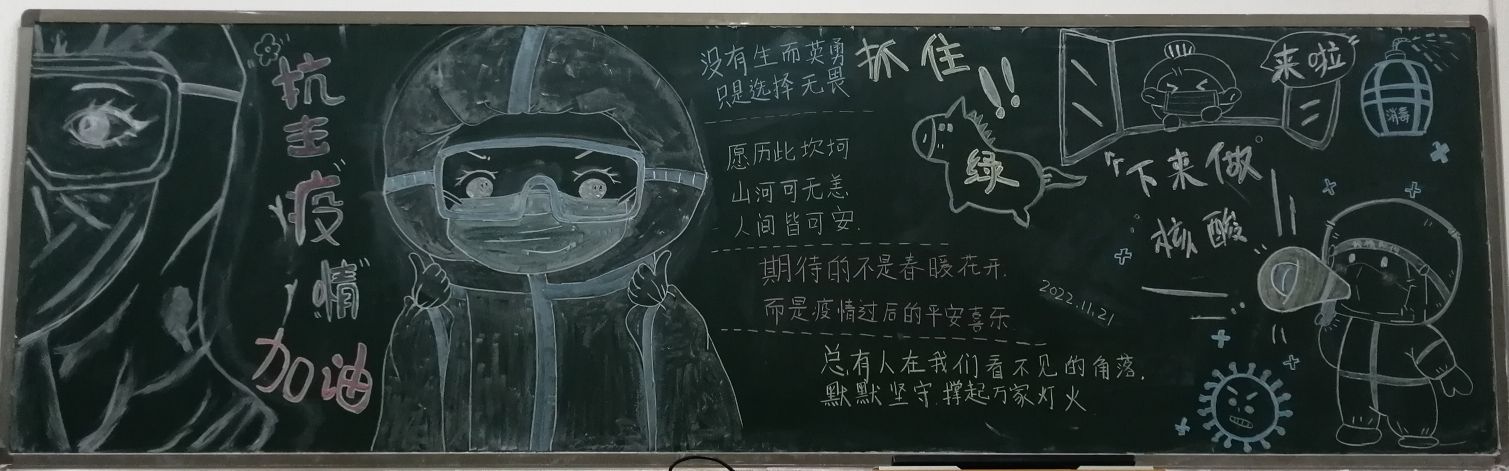 抗
击
疫
情
加油
没有生而英勇
只是选择无畏
愿历此坎坷
山河可无恙
人间皆可安.
期待的不是春暖花开.
而是疫情过后的平安喜乐.
总有人在我们看不见的角落,
默默坚守.撑起万家灯火
2022.11.21
抓住!!
绿
来啦
消毒
"下来做
核酸"